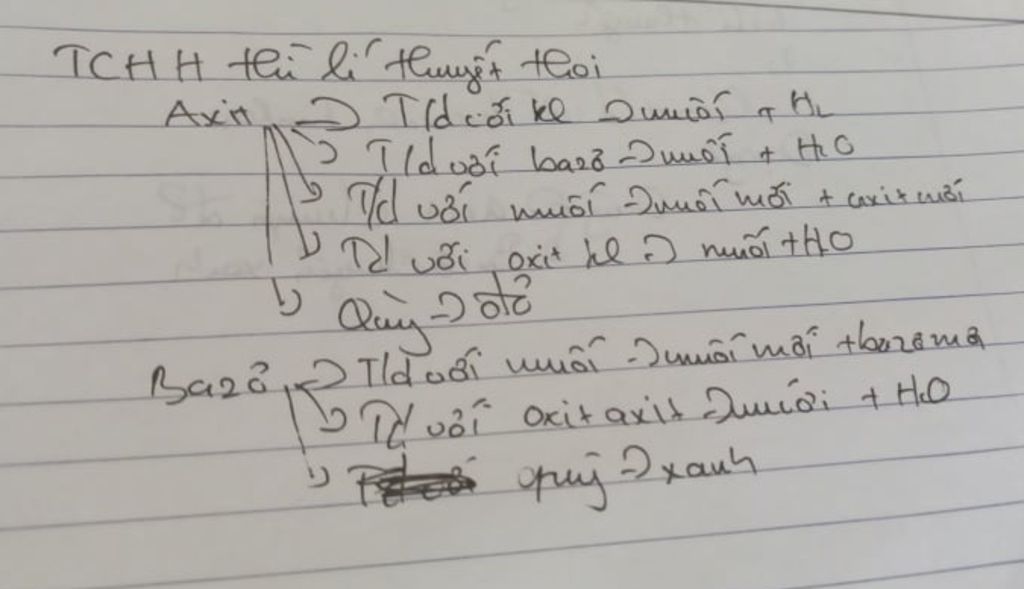 TCHH thì lí thuyết thoi
Axit → T/d với kl → muối + H2
→ T/d với bazơ → muối + H2O
→ T/d với muối → muối mới + axit mới
→ Td với oxit kl → muối + H2O
→ Quỳ → đỏ
Bazơ → T/d với muối → muối mới + bazơ mớ
→ Td với oxit axit → muối + H2O
→ quỳ → xanh